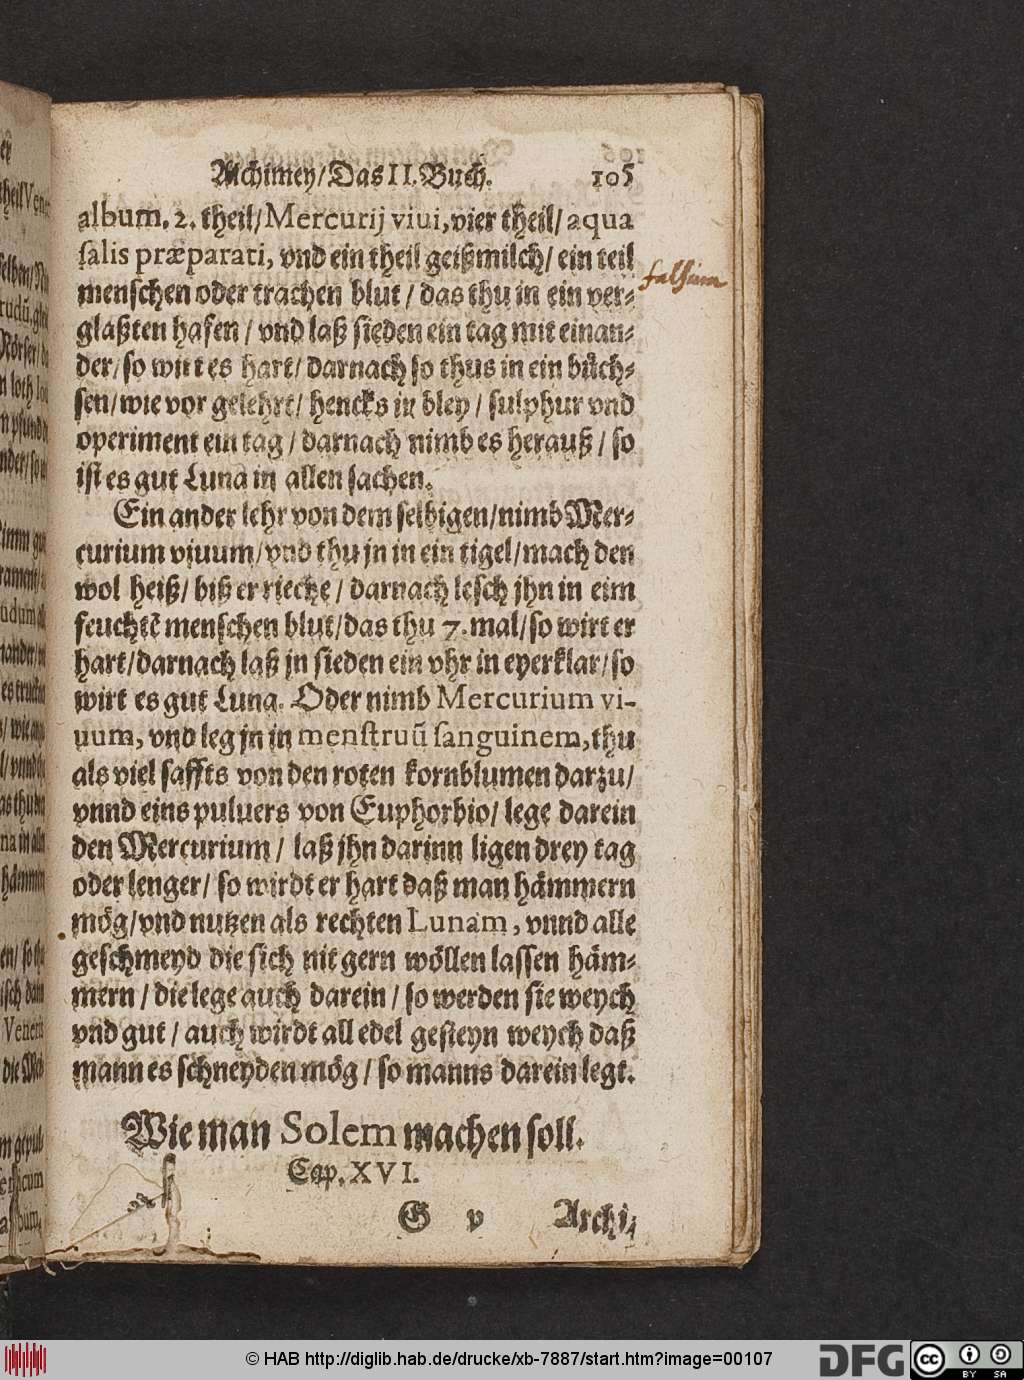 Alchimey/Das II. Buch. 105
album. 2. theil/Mercurij viui, vier theil/aqua
ſalis præparati, vnd ein theil geißmilch/ ein teil
menſchen oder trachen blut / das thu in ein ver⸗
falſum
glaßten hafen / vnd laß ſieden ein tag mit einan⸗
der/ſo wirt es hart/ darnach ſo thus in ein büch⸗
ſen/wie vor gelehrt/ hencks in bley / ſulphur vnd
operiment ein tag / darnach nimb es herauß / ſo
iſt es gut Luna in allen ſachen.
Ein ander lehr von dem ſelbigen/nimb Mer⸗
curium viuum/vnd thu jn in ein tigel/mach den
wol heiß/ biß er rieche / darnach leſch jhn in eim
feuchtẽ menſchen blut/das thu 7. mal/ſo wirt er
hart/darnach laß jn ſieden ein vhr in eyerklar/ſo
wirt es gut Luna. Oder nimb Mercurium vi-
uum, vnd leg jn in menſtruũ ſanguinem, thu
als viel ſaffts von den roten kornblumen darzu/
vnnd eins puluers von Euphorbio/ lege darein
den Mercurium / laß jhn darinn ligen drey tag
oder lenger/ ſo wirdt er hart daß man hämmern
mög/vnd nutzen als rechten Lunam, vnnd alle
geſchmeyd die ſich nit gern wöllen laſſen häm⸗
mern / die lege auch darein / ſo werden ſie weych
vnd gut / auch wirdt all edel geſteyn weych daß
mann es ſchneyden mög / ſo manns darein legt.
Wie man Solem machen ſoll.
Cap. XVI.
G v Archi⸗
© HAB http://diglib.hab.de/drucke/xb-7887/start.htm?image=00107
DFG
cc BY SA